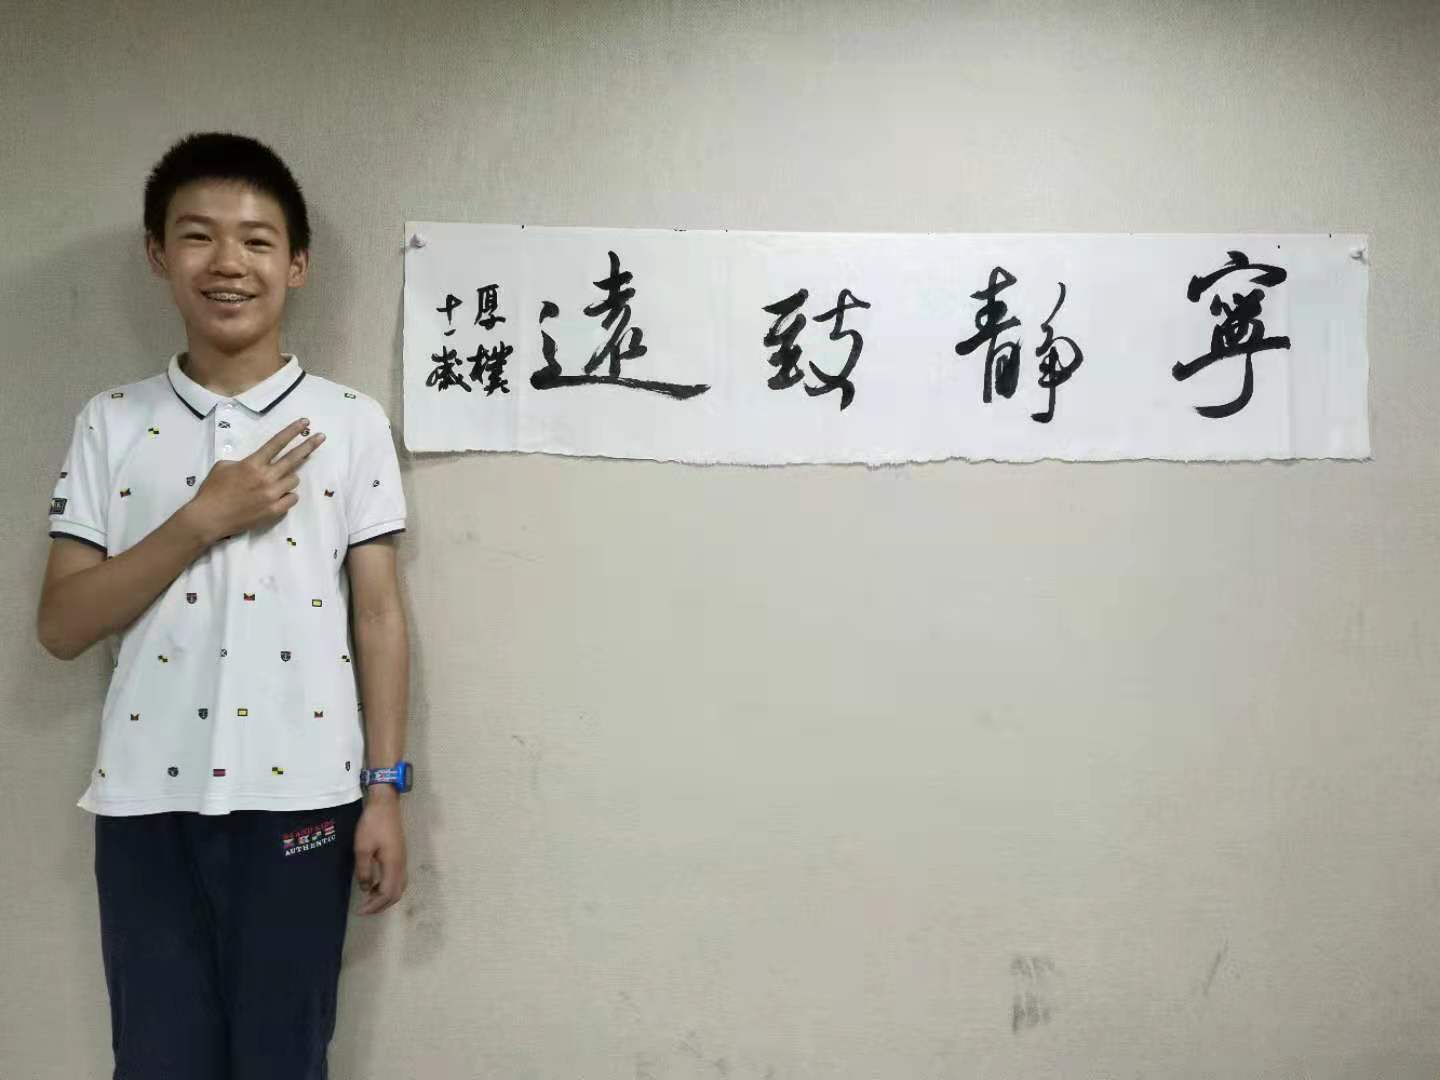 寧靜致遠
厚樸
十一歲
AUTHENTIC